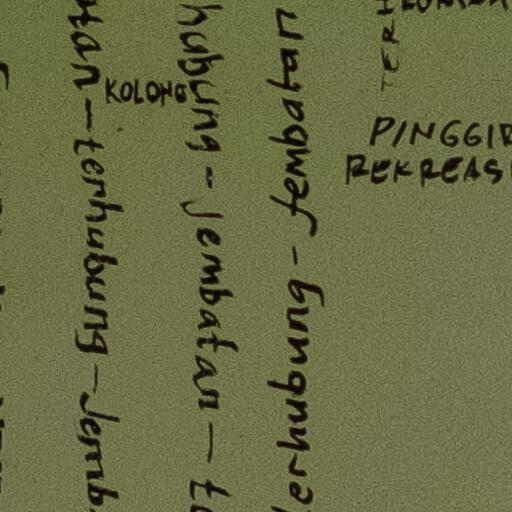 tan - terhubung - Jemb
KOLONG
hubung - Jembatan - te
erhubung - Jembatan
TER
PINGGIR
REKREASI